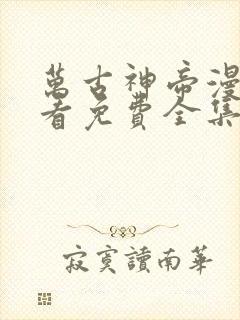 萬古神帝漫
看免費全集
寂寞讀南華